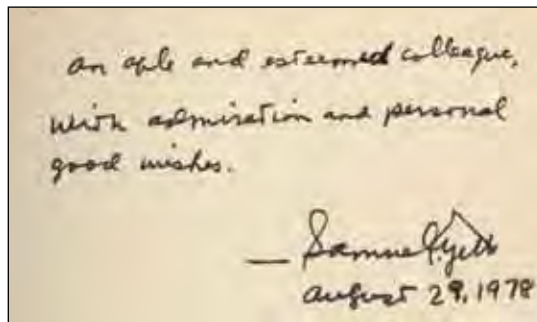 an able and esteemed colleague,
with admiration and personal
good wishes.
— Samuel F. Yette
August 29, 1978